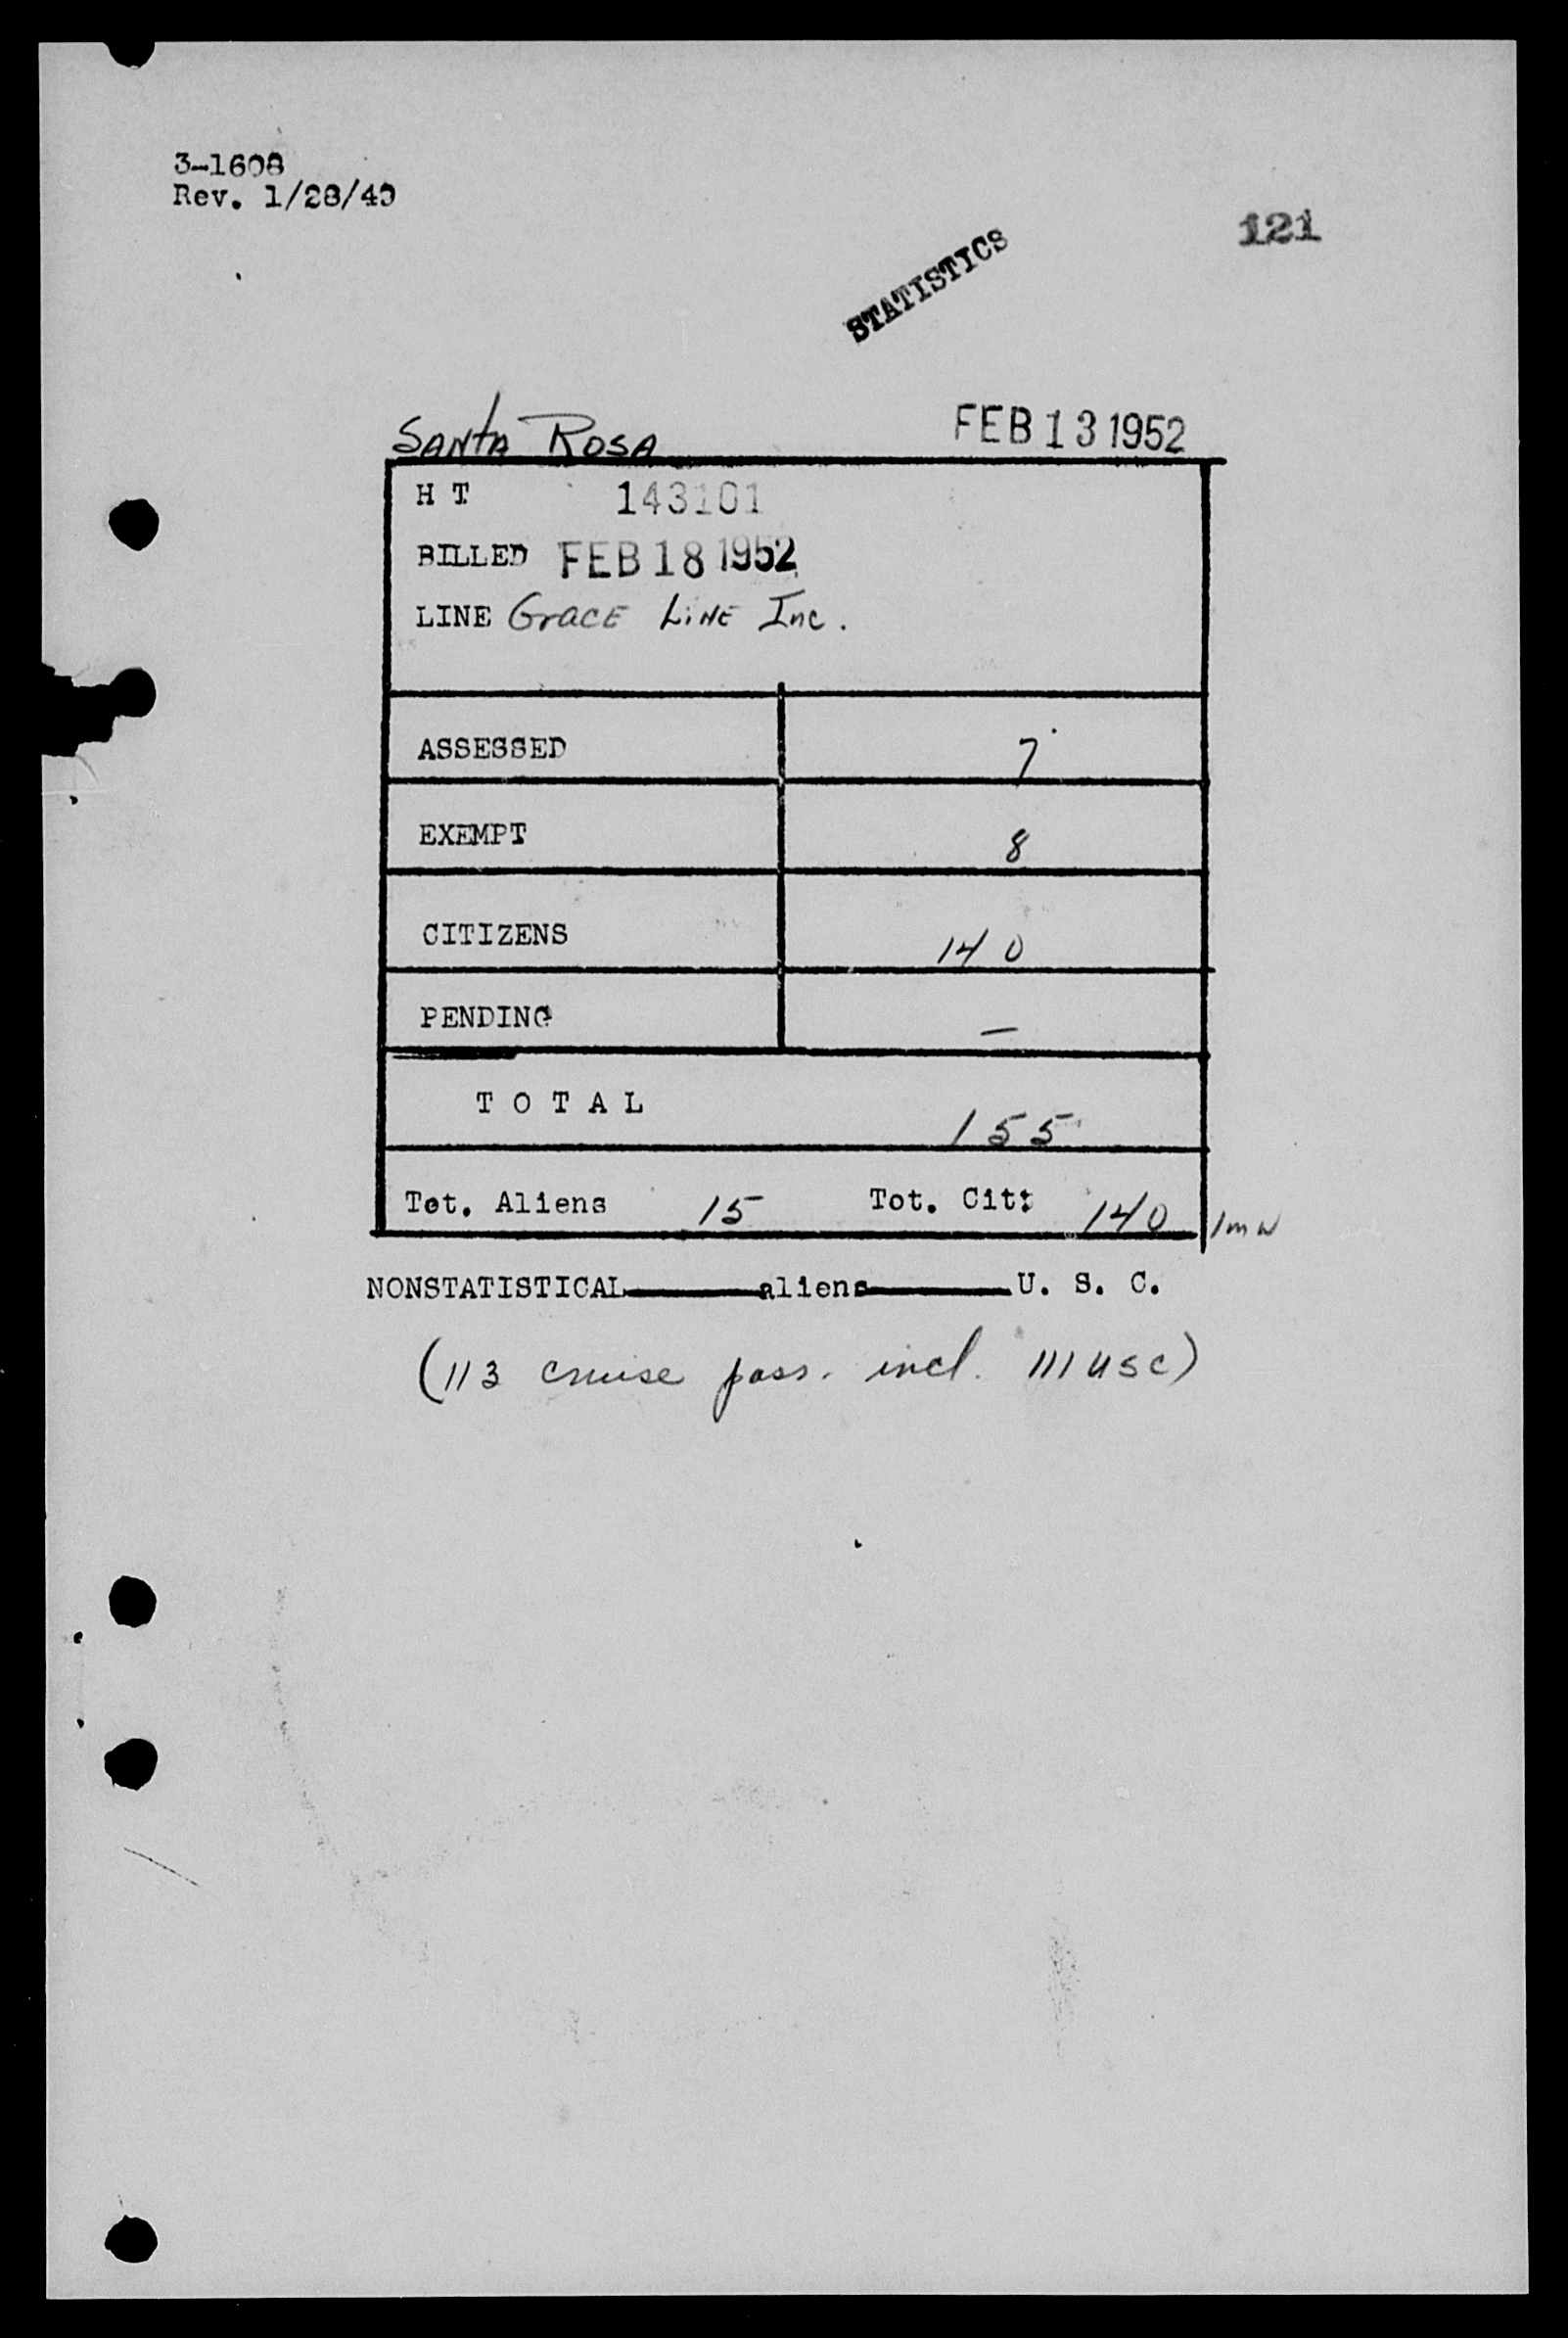 3-1608
Rev. 1/28/49
121
STATISTICS
SANTA ROSA FEB 13 1952
H T 143101
BILLED FEB 18 1952
LINE Grace Line Inc.
ASSESSED 7
EXEMPT 8
CITIZENS 140
PENDING —
T O T A L 155
Tot. Aliens 15 Tot. Cit: 140
NONSTATISTICAL aliens U. S. C.
(113 cruise pass. incl. 111 USC)